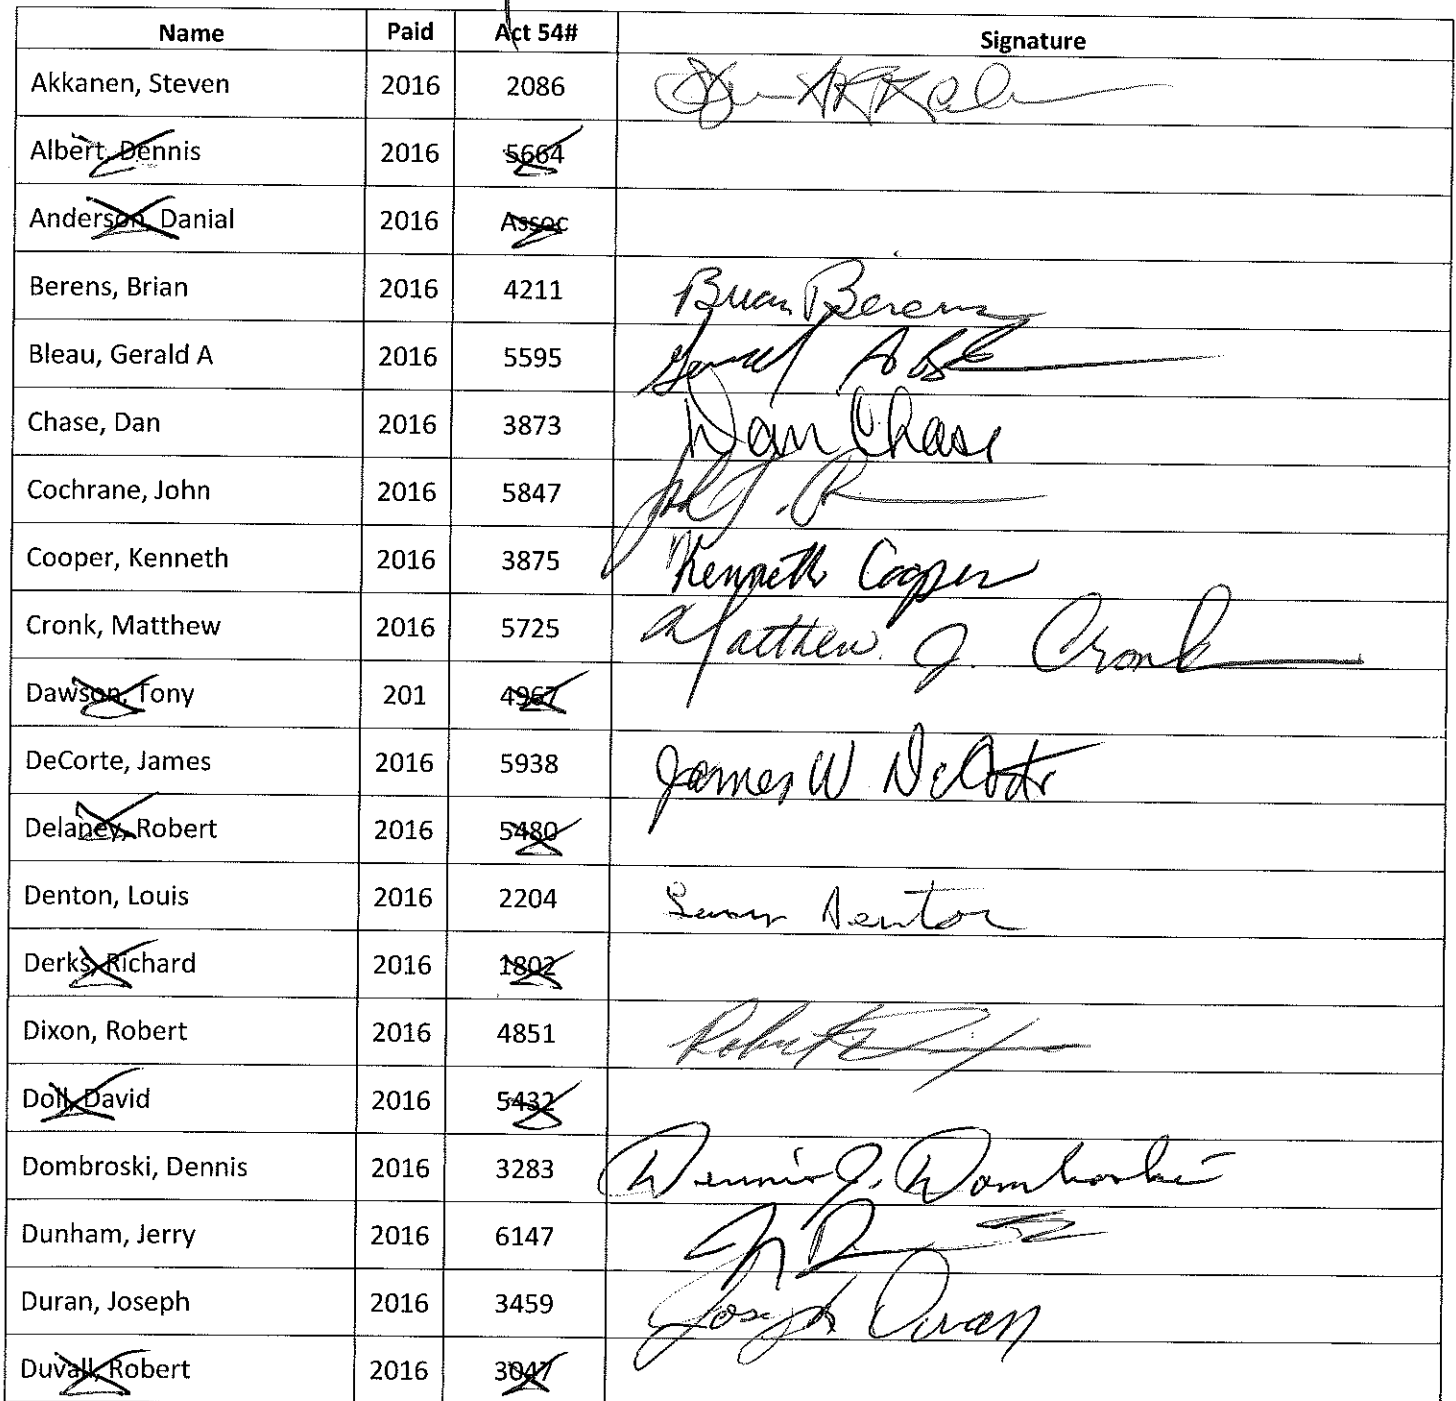 Name Paid Act 54# Signature
Akkanen, Steven 2016 2086
Albert, Dennis 2016 5664
Anderson, Danial 2016 Assoc
Berens, Brian 2016 4211 Brian Berens
Bleau, Gerald A 2016 5595
Chase, Dan 2016 3873 Dan Chase
Cochrane, John 2016 5847
Cooper, Kenneth 2016 3875 Kenneth Cooper
Cronk, Matthew 2016 5725 Matthew J. Cronk
Dawson, Tony 201 4967
DeCorte, James 2016 5938 James W DeCorte
Delaney, Robert 2016 5480
Denton, Louis 2016 2204 Denton
Derks, Richard 2016 1802
Dixon, Robert 2016 4851 Robert Dixon
Doll, David 2016 5432
Dombroski, Dennis 2016 3283 Dennis J. Dombroski
Dunham, Jerry 2016 6147
Duran, Joseph 2016 3459 Joseph Duran
Duvall, Robert 2016 3047